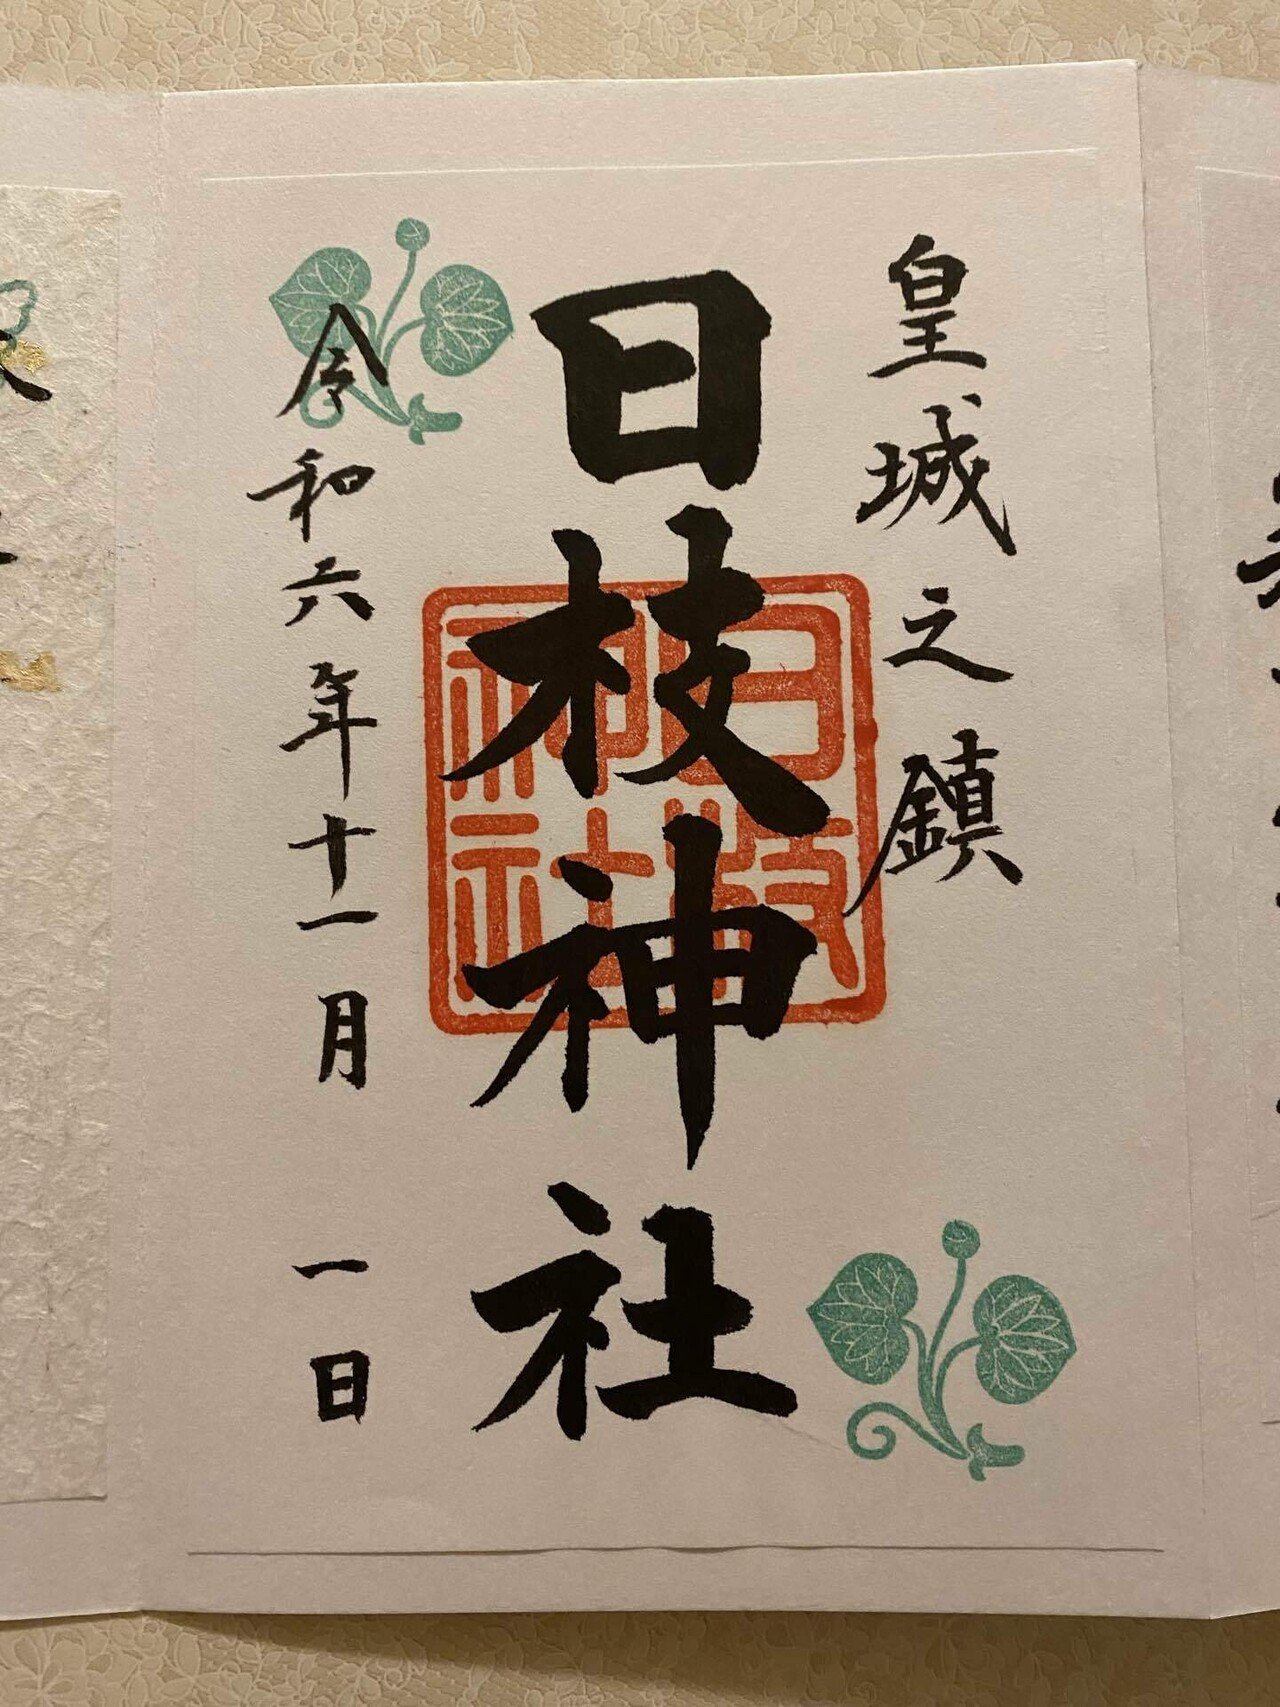 皇城之鎮
日枝神社
日枝神社
令和六年十一月一日